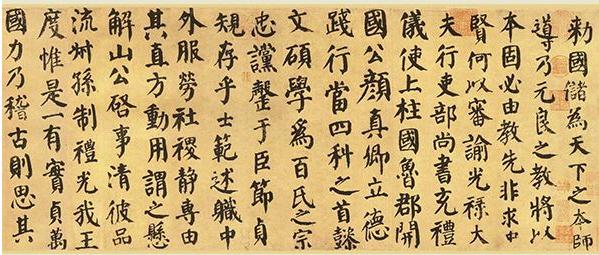 勅國儲為天下之本師
導乃元良之教將以
本固必由教先非求中
賢何以審諭光祿大
夫行吏部尚書充禮
儀使上柱國魯郡開
國公顏真卿立德
踐行當四科之首懿
文碩學爲百氏之宗
忠讜罄于臣節貞
規存乎士範述職中
外服勞社稷靜專由
其直方動用謂之懸
解山公啓事清彼品
流叔孫制禮光我王
度惟是一有實貞萬
國力乃稽古則思其